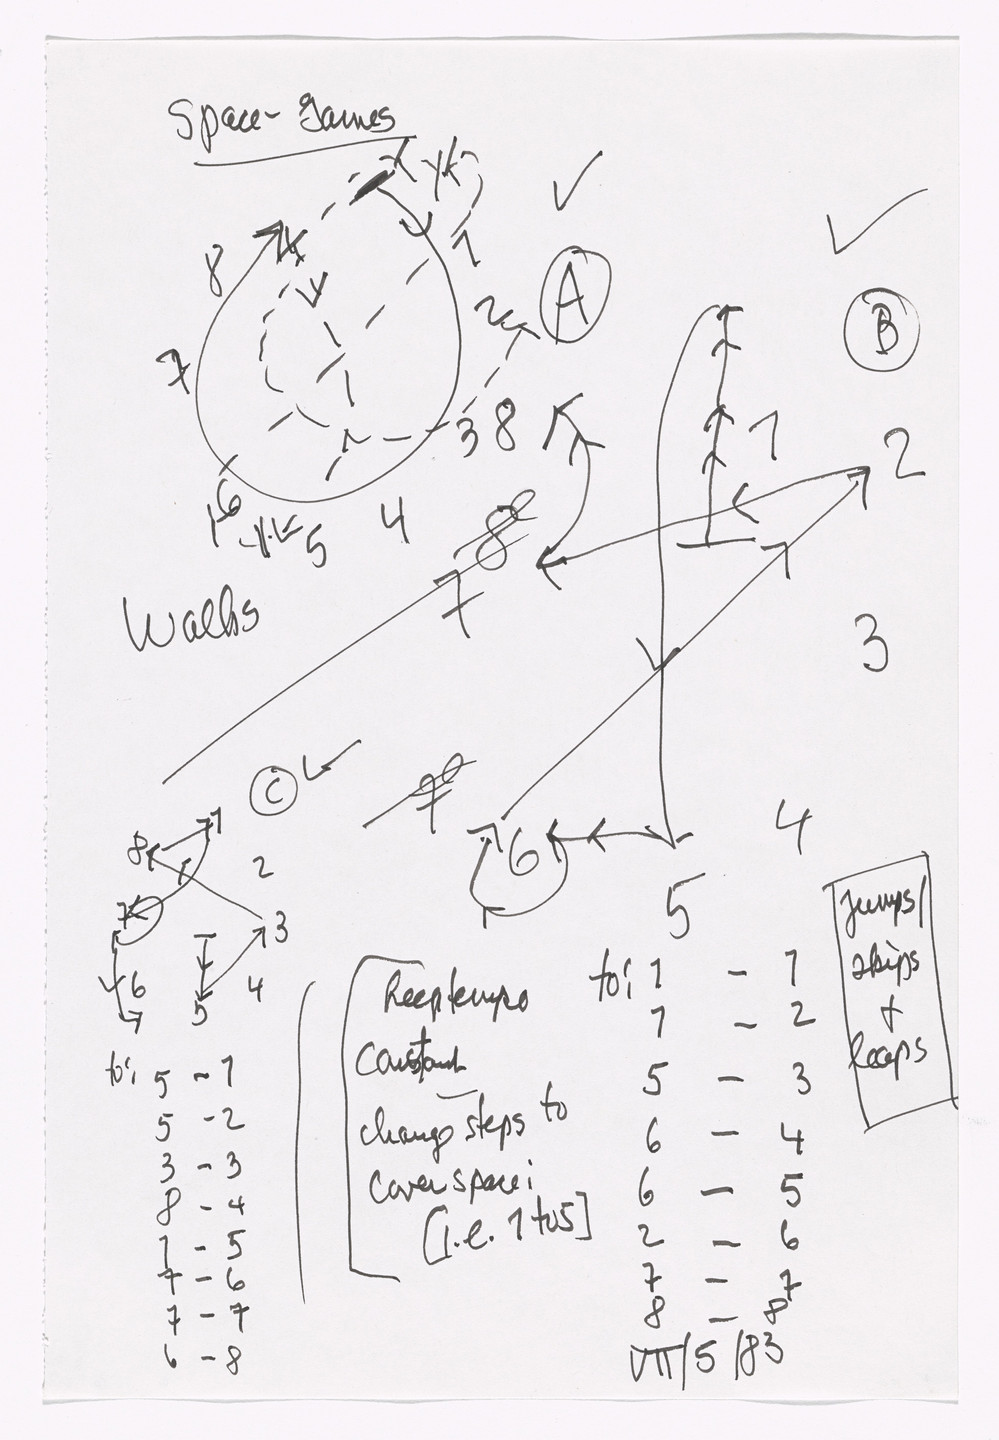 Space-Games
1
2
3
4
5
6
7
8
A
Walks
B
1
2
3
4
5
6
7
8
C
1
2
3
4
5
6
7
8
to:
5 - 1
5 - 2
3 - 3
8 - 4
1 - 5
7 - 6
7 - 7
6 - 8
Keep tempo
Constant
change steps to
cover space:
[i.e. 1 to 5]
to: 1 - 1
1 - 2
5 - 3
6 - 4
6 - 5
2 - 6
7 - 7
8 - 8
VII/5/83
jumps/
skips
+
leaps